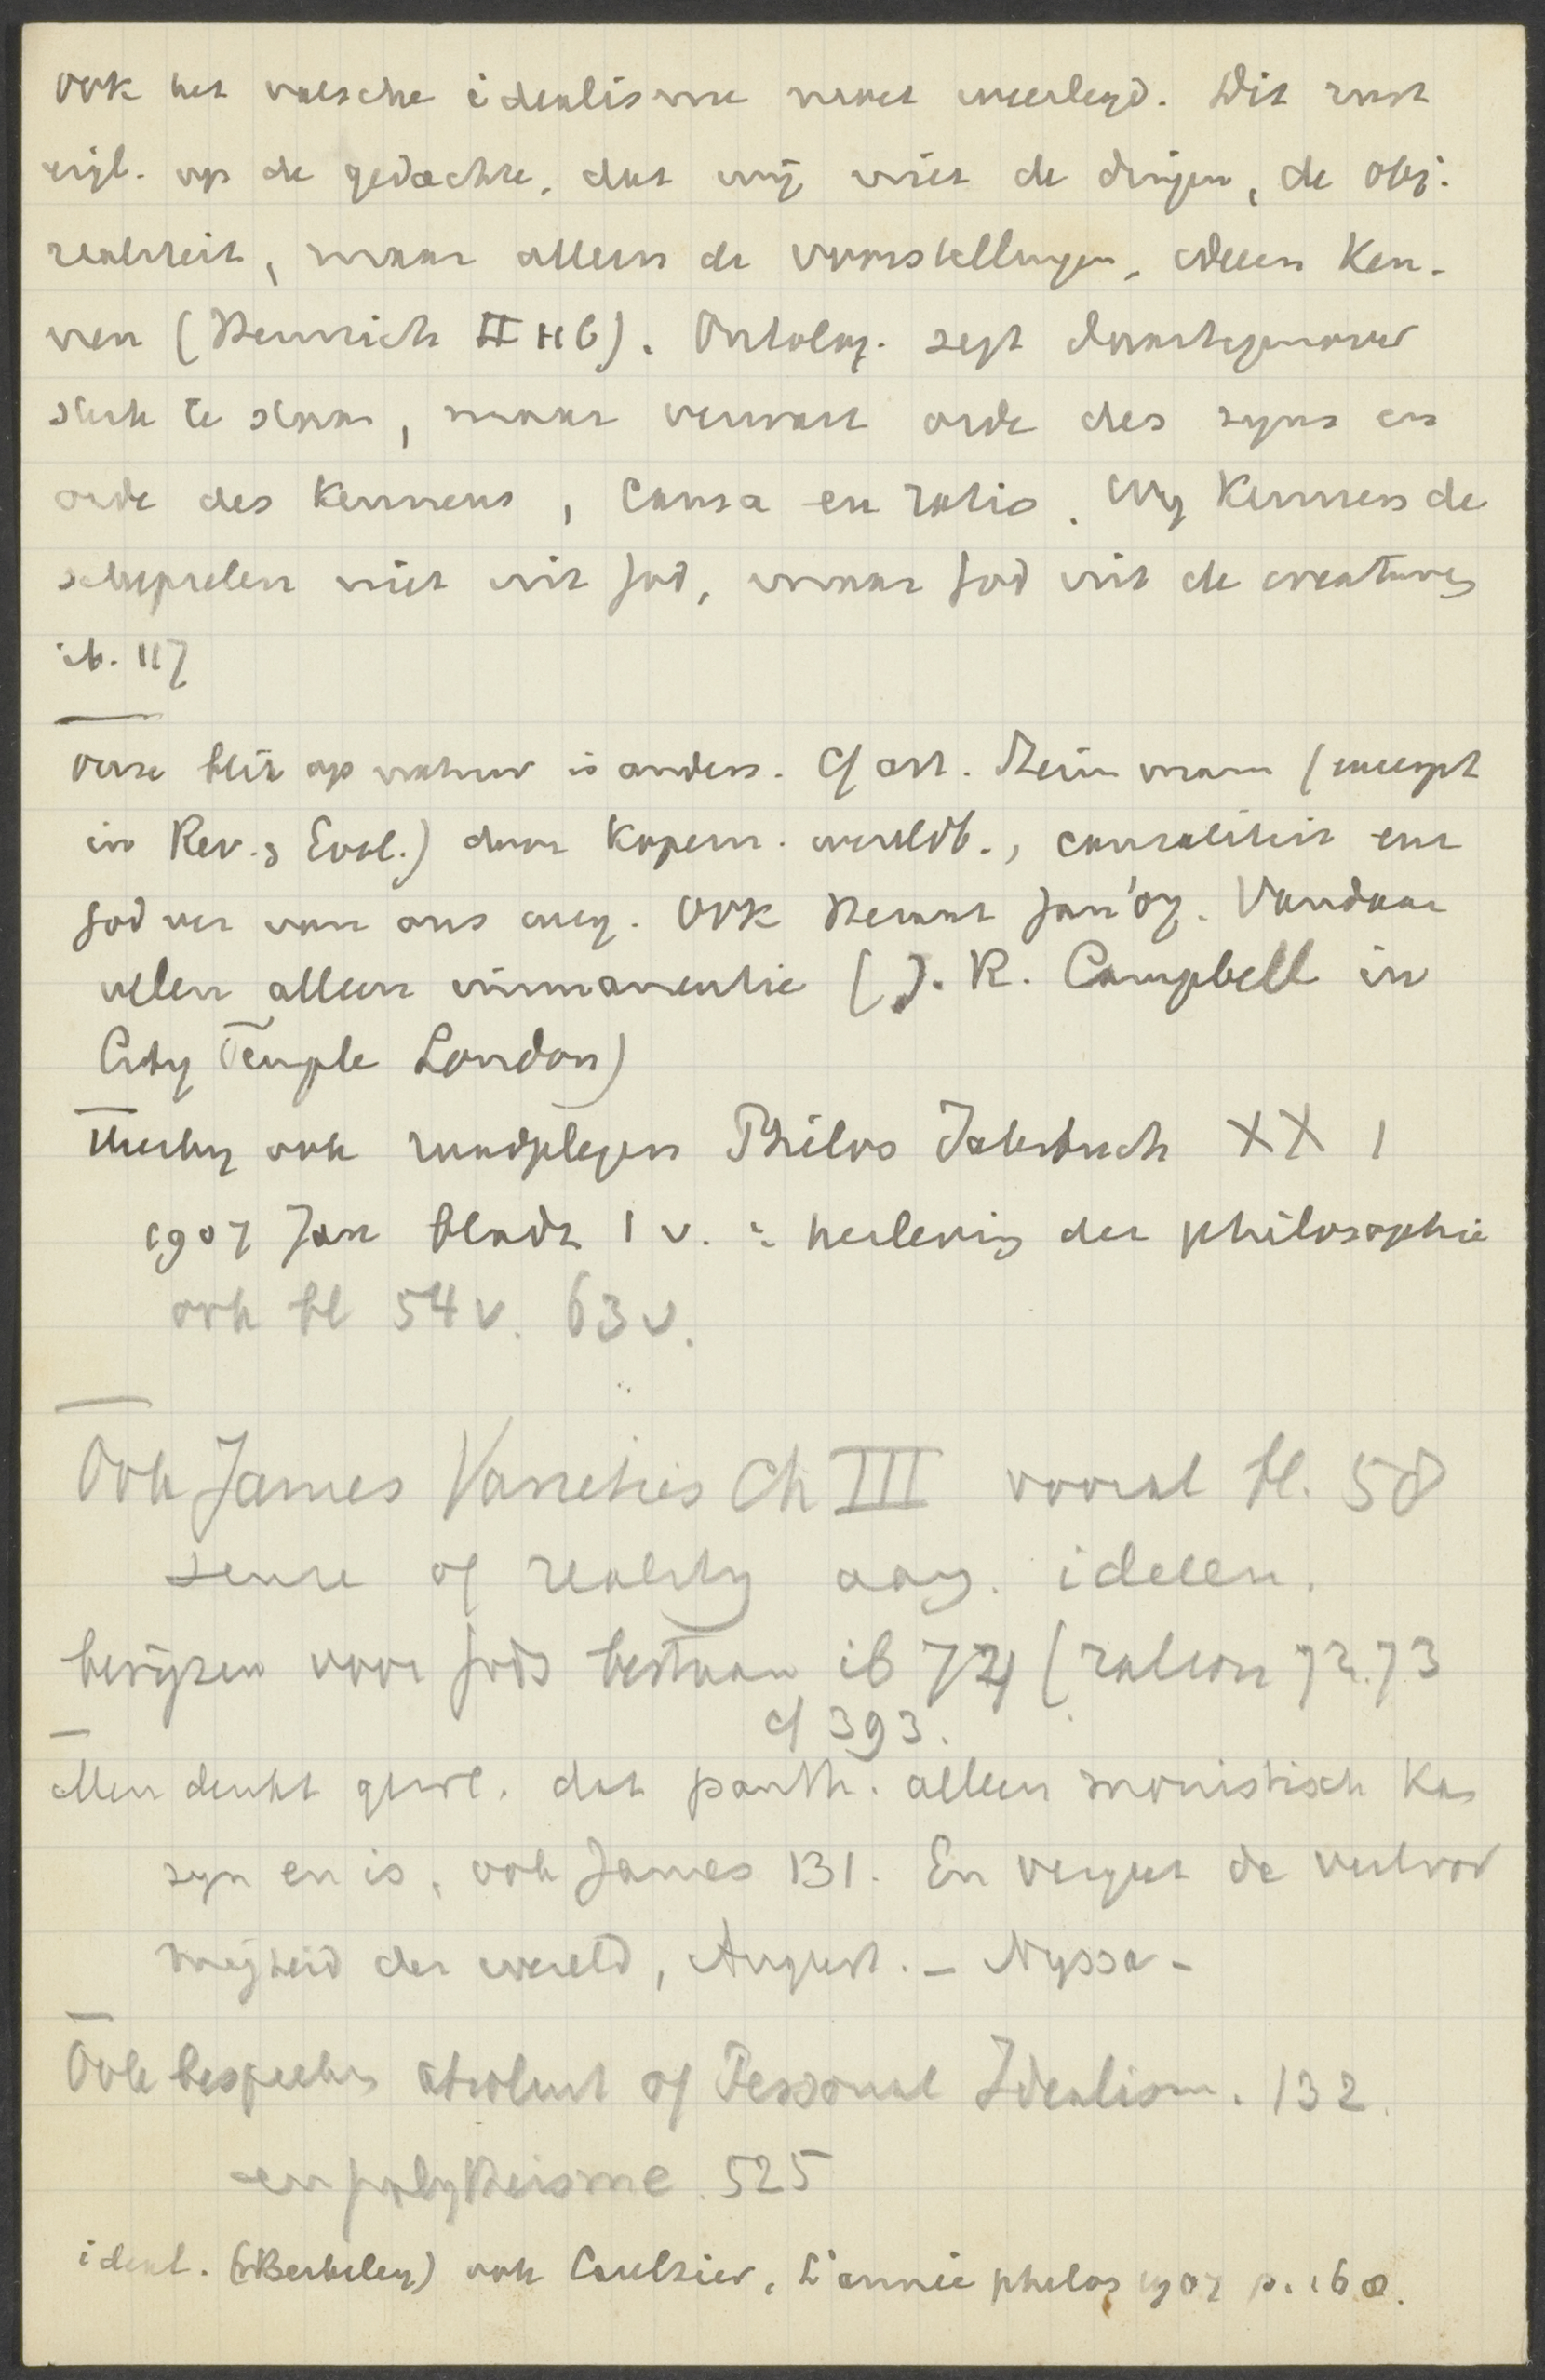 Ook het valsche idealisme moet weerlegd. Dit rust
eigl. op de gedachte, dat wij niet de dingen, de obj.
realiteit, maar alleen de voorstellingen, ideeen ken-
nen (Heinrich II 116). Ontolog. zegt daartegenover
sterk te staan, maar verwart orde des zyns en
orde des kennens, causa en ratio. Wy kennen de
schepselen niet uit God, maar God uit de creatures
ib. 117
Onze blik op natuur is anders. Cf art. Heinemann (excerpt
in Rev. & Evol.) door Kopern. wereldb., causaliteit enz
God ver van ons weg. Ook Jan '07. Vandaar
velen alleen immanentie (J. R. Campbell in
City Temple London)
Hierby ook raadplegen Philos Jahrbuch XX 1
1907 Jan bladz 1 v. : herleving der philosophie
ook bl 54 v. 63 v.
Ook James Varieties Ch III vooral bl. 58
sense of reality aang. ideeen.
bewyzen voor Gods bestaan ib 74 (ration 72.73
cf 393.
Men denkt gewl. dat panth. alleen monistisch kan
zyn en is, ook James 131. En vergeet de veelvor
migheid der wereld, August. - Nyssa -
Ook bespreken absoluut of Personal Idealism. 132.
en polytheisme. 525
ideal. (v Berkeley) ook L'année philos 1907 p. 168.